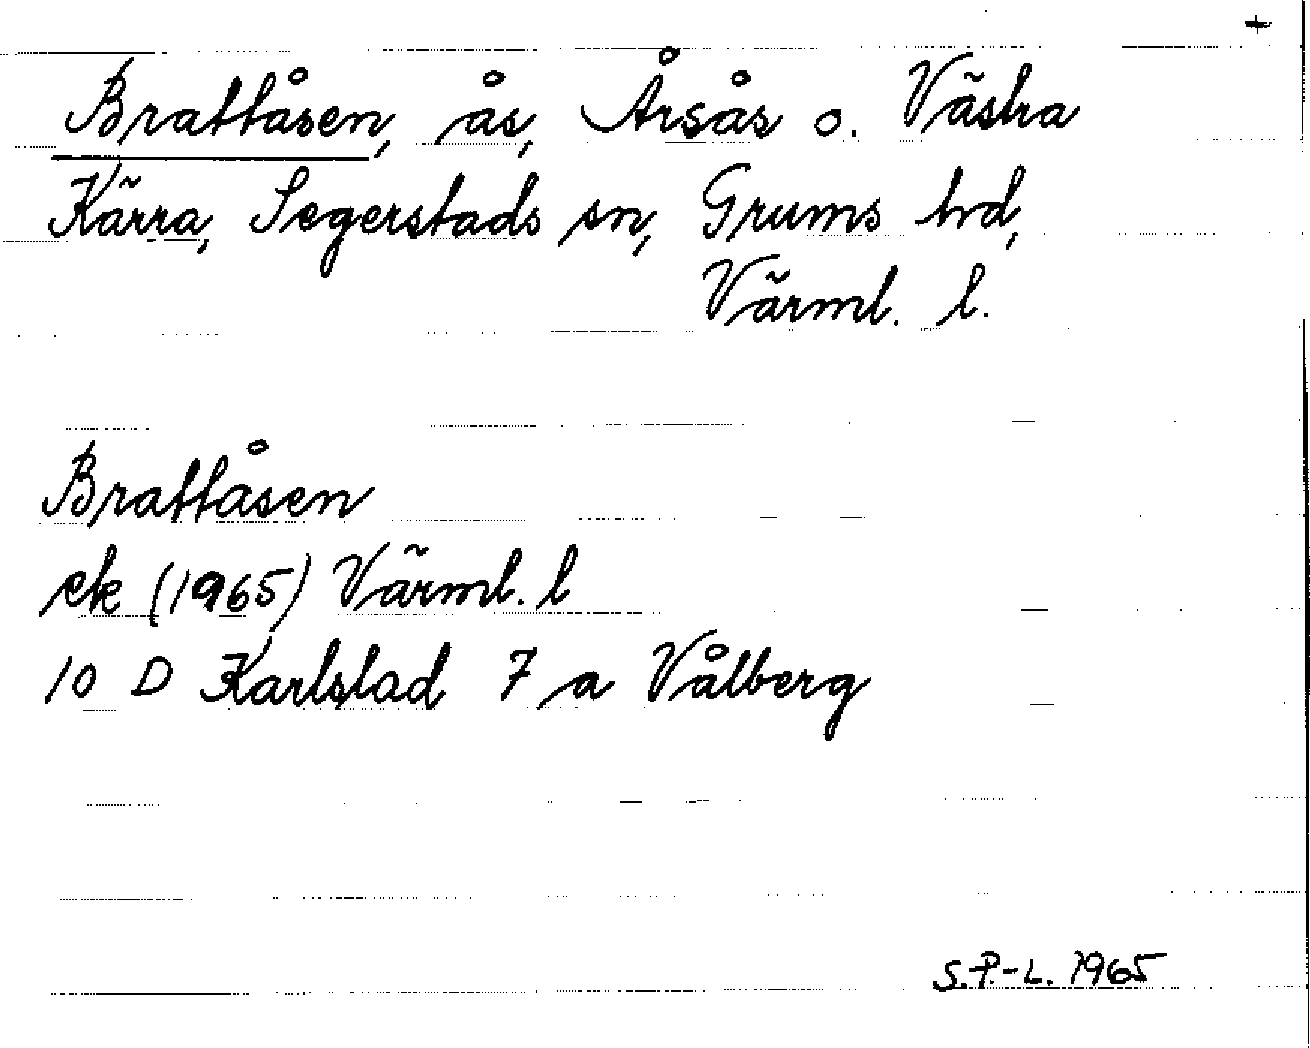 +
Brattåsen, ås, Årsås o. Västra
Kärra, Segerstads sn, Grums hrd,
Värml. l.
Brattåsen
ek (1965) Värml. l
10 D Karlstad 7 a Vålberg
S.P.-L. 1965